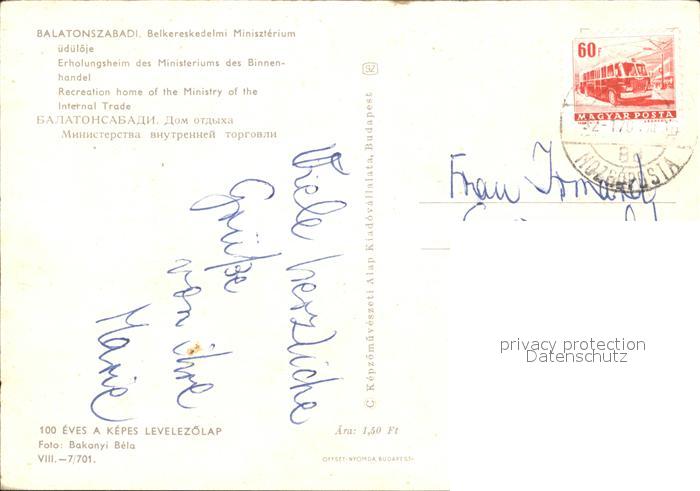 BALATONSZABADI. Belkereskedelmi Minisztérium
üdülője
Erholungsheim des Ministeriums des Binnen-
handel
Recreation home of the Ministry of the
Internal Trade
БАЛАТОНСАБАДИ. Дом отдыха
Министерства внутренней торговли
Viele herzliche
Grüße
von ihre
Marie
100 ÉVES A KÉPES LEVELEZŐLAP
Foto: Bakonyi Béla
VIII.—7/701.
Ára: 1,50 Ft
OFFSET-NYOMDA BUDAPEST
C Képzőművészeti Alap Kiadóvállalata, Budapest
SZ
60f
MAGYAR POSTA
MOZGÓPOSTA
Frau
privacy protection
Datenschutz